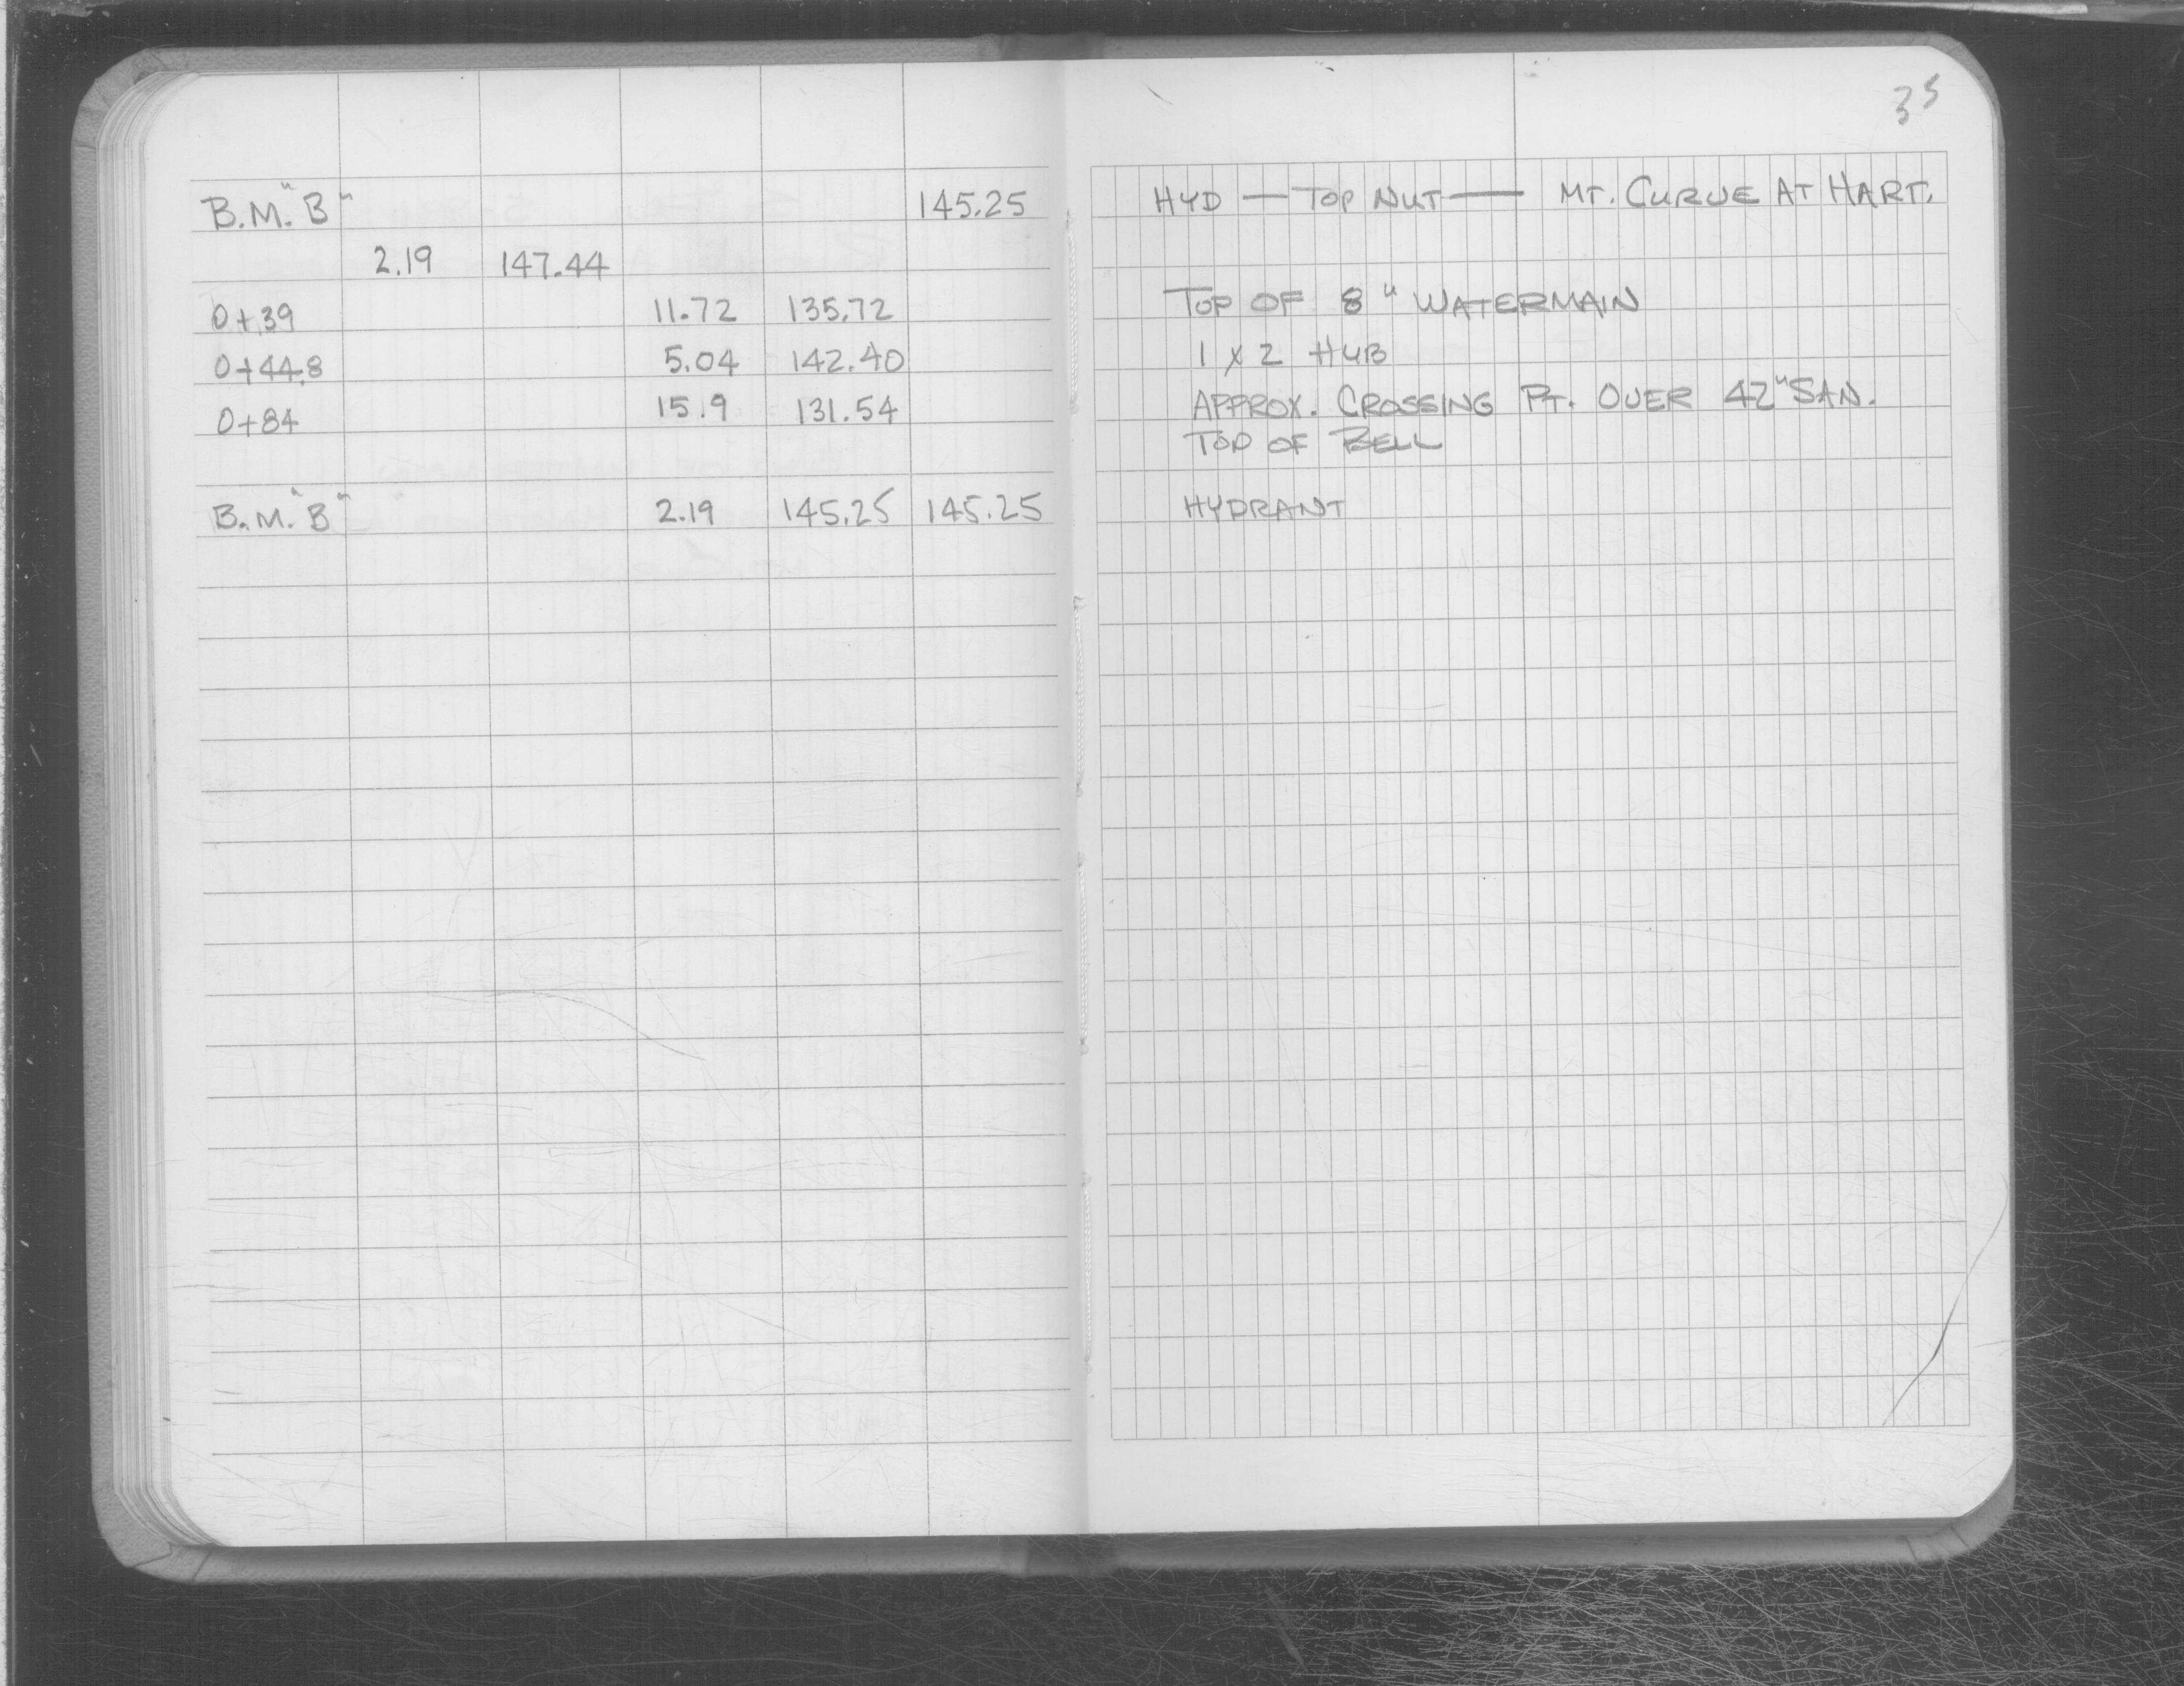 35
B.M. "B" 145.25 HYD — TOP NUT — MT. CURVE AT HART.
2.19 147.44
0+39 11.72 135.72 TOP OF 8" WATERMAIN
0+44.8 5.04 142.40 1 x 2 HUB
0+84 15.9 131.54 APPROX. CROSSING PT. OVER 42" SAN.
TOP OF BELL
B.M. "B" 2.19 145.25 145.25 HYDRANT